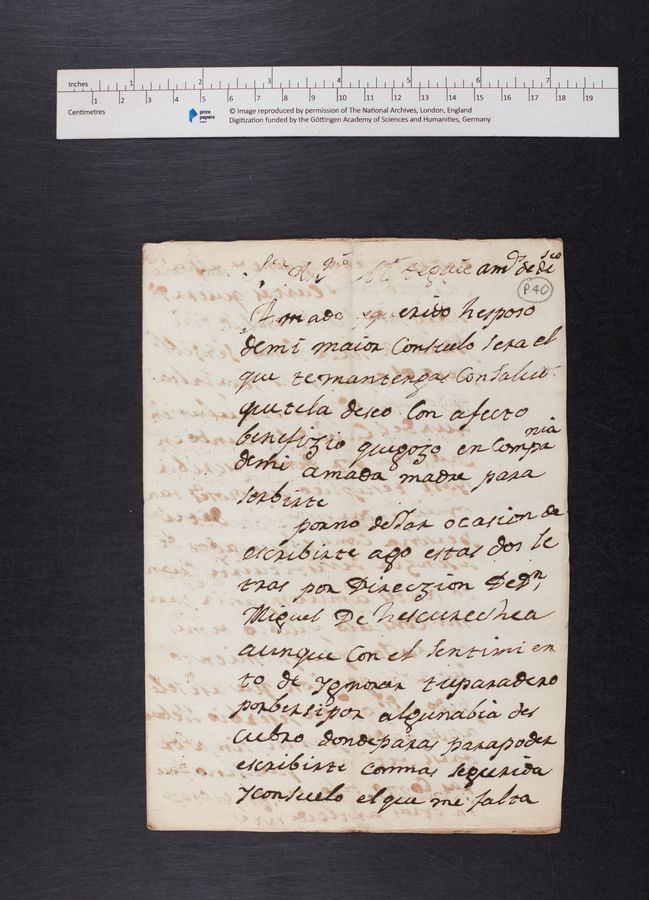 Inches 1 2 3 4 5 6 7
1 2 3 4 5 6 7 8 9 10 11 12 13 14 15 16 17 18 19
Centimetres
prize papers
© Image reproduced by permission of The National Archives, London, England
Digitization funded by the Göttingen Academy of Sciences and Humanities, Germany
P40
Amado querido hesposo
demi maior Consuelo sera el
que temantengas Con Salud
quetela deseo Con afecto
benefizio quegozo en Compania
demi amada madre para
serbirte
porno dejar ocasion de
escribirte ago estas dos le
tras por Direczion Dedn
Miguel De hescurechea
aunque Con el Sentimien
to de Ygnorar tuparadero
porbersipor algunabia des
cubro dondeparas parapoder
escribirte conmas segurida
Yconsuelo elque me falta